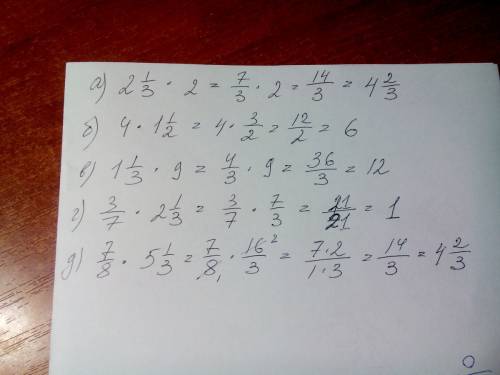 а) 2 1/3 · 2 = 7/3 · 2 = 14/3 = 4 2/3
б) 4 · 1 1/2 = 4 · 3/2 = 12/2 = 6
в) 1 1/3 · 9 = 4/3 · 9 = 36/3 = 12
г) 3/7 · 2 1/3 = 3/7 · 7/3 = 21/21 = 1
д) 7/8 · 5 1/3 = 7/8₁ · 16²/3 = 7·2/1·3 = 14/3 = 4 2/3